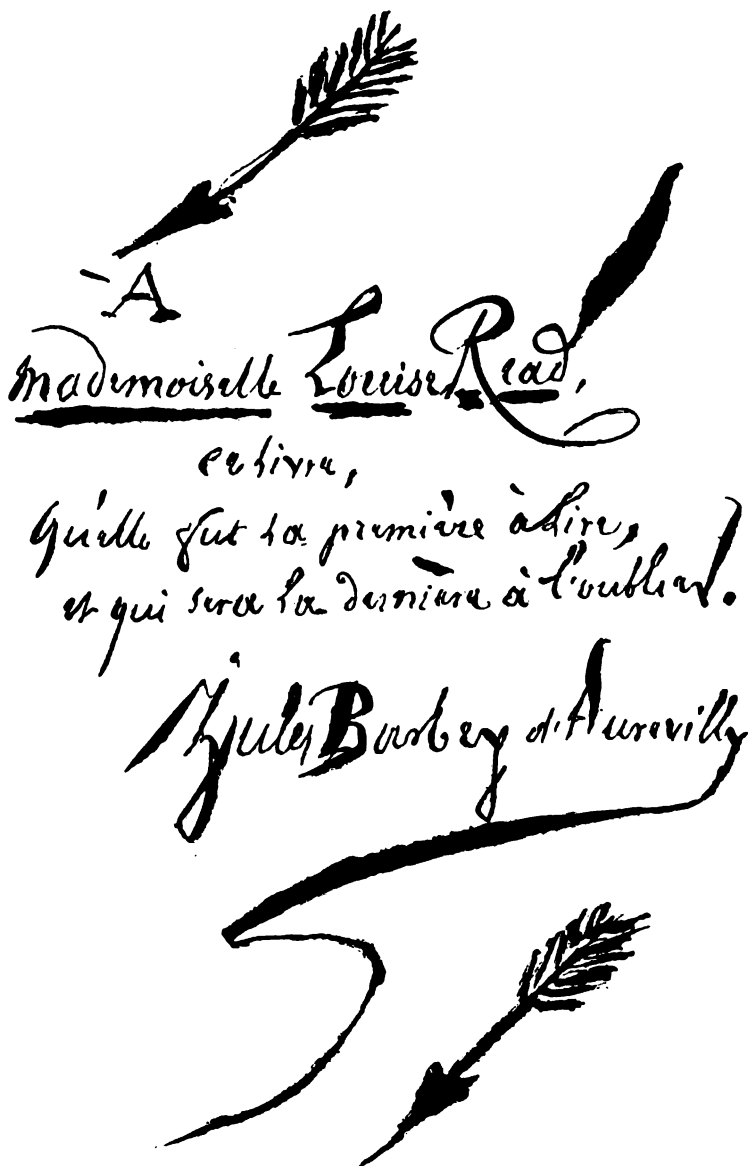 A
Mademoiselle Louise Read,
ce livre,
Qu'elle fut la première à lire,
et qui sera la dernière à l'oublier!
Jules Barbey d'Aurevilly